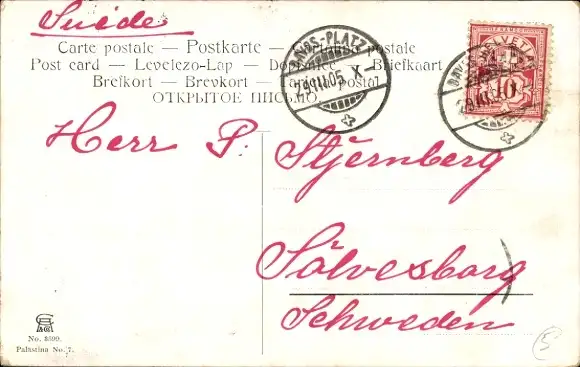 Suède
Carte postale — Postkarte — Cartolina postale
Post card — Levelező-Lap — Dopisnice — Briefkaart
Brefkort — Brevkort — Tarjeta Postal
ОТКРЫТОЕ ПИСЬМО
DAVOS-PLATZ
29.III.05. X
HELVETIA
10
Herr P. Stjernberg
Sölvesborg
Schweden
No. 3599.
Palästina No. 7.
5